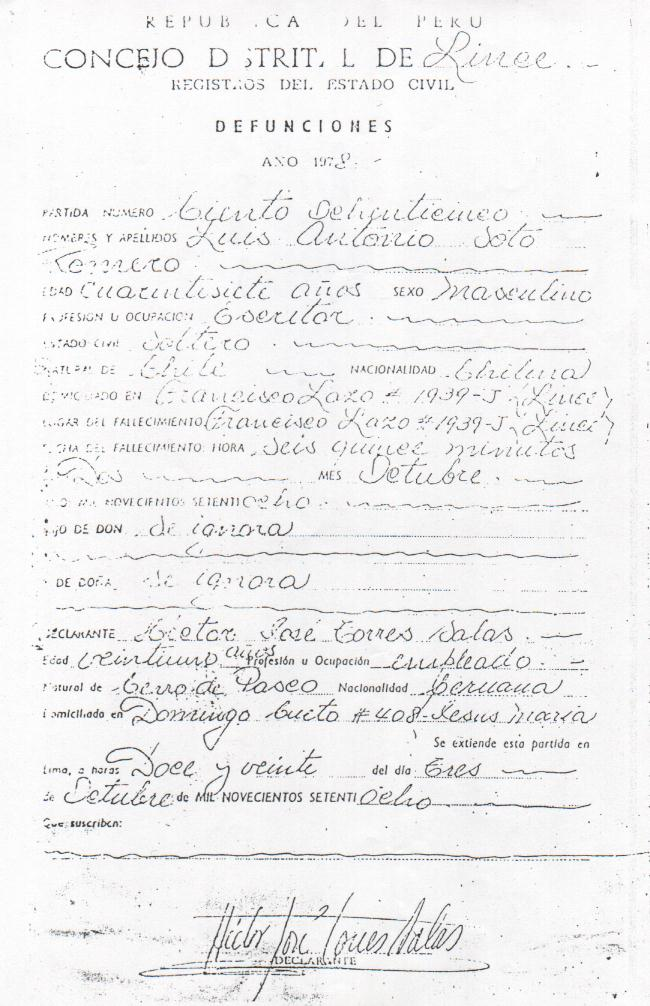 REPUB .CA DEL PERU
CONCEJO D STRIT L DE Lince.
REGISTROS DEL ESTADO CIVIL
DEFUNCIONES
AÑO 1978.-
PARTIDA NUMERO Ciento
NOMBRES Y APELLIDOS Luis Antonio Soto
Romero
EDAD Cuarintisiete años SEXO Masculino
PROFESION U OCUPACION Escritor.
ESTADO CIVIL Soltero
NATURAL DE Chile NACIONALIDAD Chilena
DOMICILIADO EN Francisco Lazo # 1939-J (Lince)
LUGAR DEL FALLECIMIENTO Francisco Lazo # 1939-J (Lince)
FECHA DEL FALLECIMIENTO: HORA Seis quince minutos
Dos MES Octubre.
NOVECIENTOS SETENTI ocho.
HIJO DE DON se ignora
Y DE DOÑA se ignora
DECLARANTE Héctor José Torres Salas.
Edad veintiuno años Profesión u Ocupación empleado.
Natural de Cerro de Pasco Nacionalidad peruana
Domiciliado en Domingo Cueto #408-Jesus Maria
Se extiende esta partida en
Lima, a horas Doce y veinte del día Tres
de Octubre de MIL NOVECIENTOS SETENTI Ocho
Que suscriben:
Héctor José Torres Salas
DECLARANTE